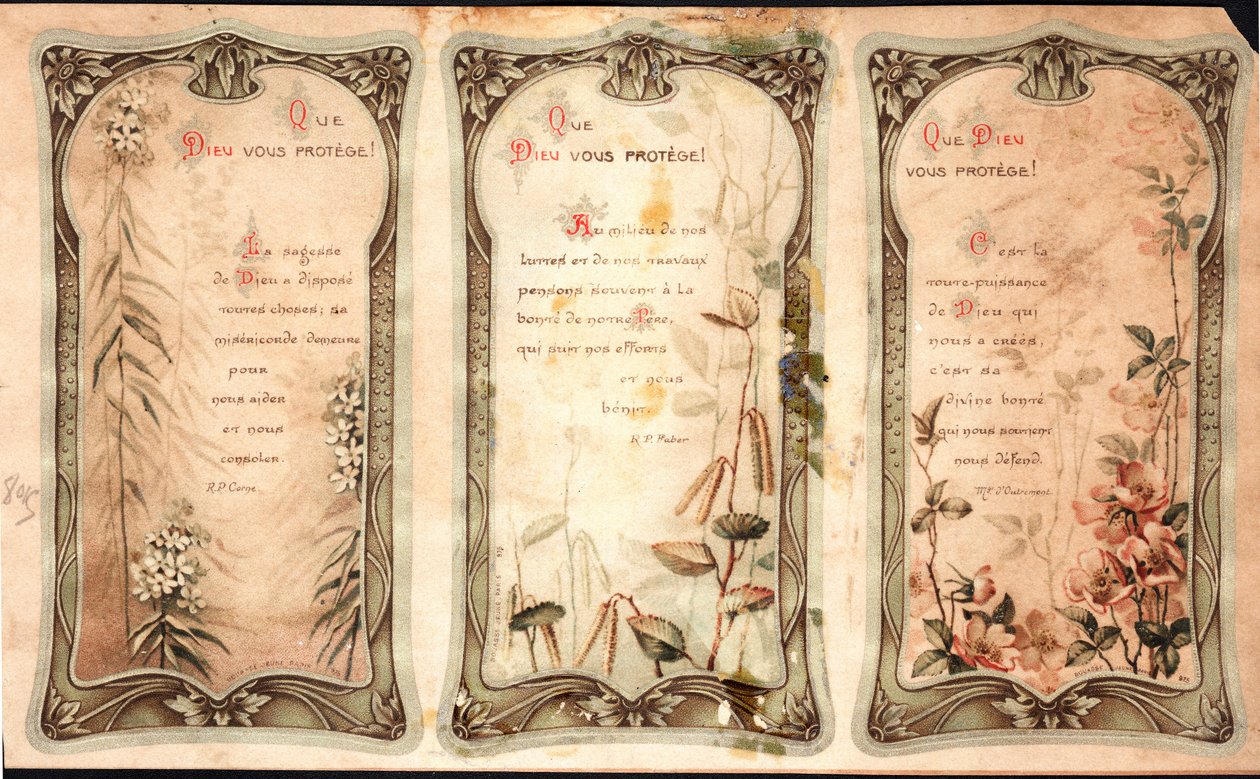 Que
Dieu vous protège!
La sagesse
de Dieu a disposé
toutes choses; sa
miséricorde demeure
pour
nous aider
et nous
consoler.
R.P. Corne.
Que
Dieu vous protège!
Au milieu de nos
luttes et de nos travaux
pensons souvent à la
bonté de notre Père,
qui suit nos efforts
et nous
bénit.
R.P. Faber
BOUASSE JEUNE PARIS 975
Que Dieu
vous protège!
C'est la
toute-puissance
de Dieu qui
nous a créés,
c'est sa
divine bonté
qui nous soutient
nous défend.
d'Outremont.
BOUASSE JEUNE
975